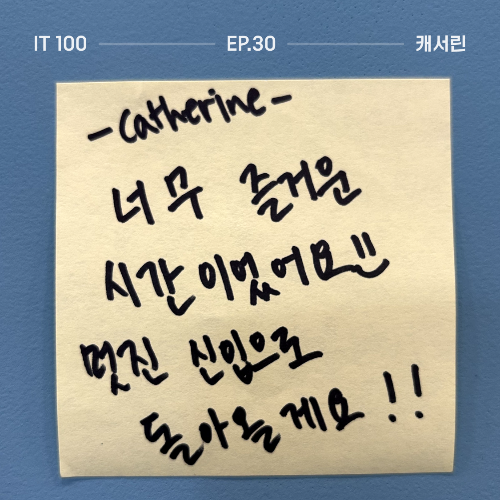 IT 100 EP.30 캐서린
-Catherine-
너무 즐거운
시간이었어요!!
멋진 신입으로
돌아올게요!!